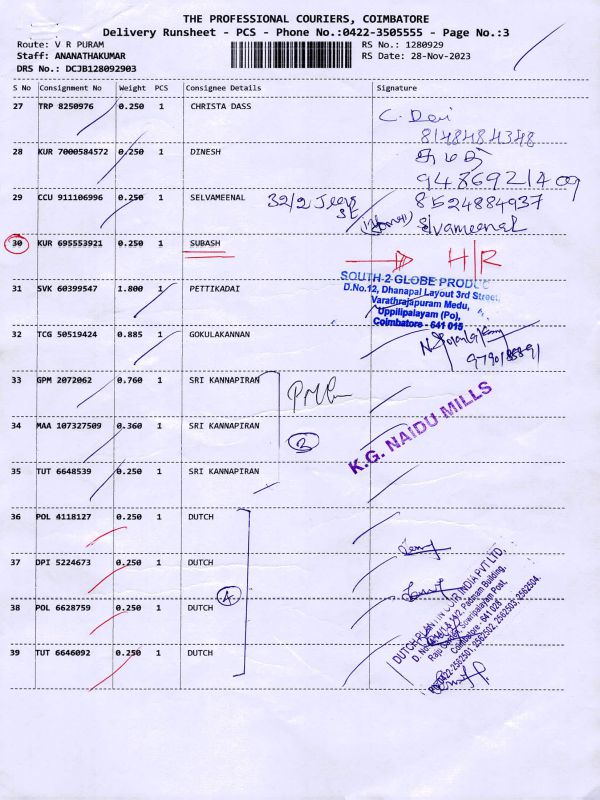 THE PROFESSIONAL COURIERS, COIMBATORE
Delivery Runsheet - PCS - Phone No.:0422-3505555 - Page No.:3
Route: V R PURAM
RS No.: 1280929
Staff: ANANATHAKUMAR
RS Date: 28-Nov-2023
DRS No.: DCJB128092903
S No Consignment No Weight PCS Consignee Details Signature
27 TRP 8250976 0.250 1 CHRISTA DASS
C. Devi
8148484348
28 KUR 7000584572 0.250 1 DINESH
9486921409
29 CCU 911106996 0.250 1 SELVAMEENAL 32/2
8524884937
Selvameenal
30 KUR 695553921 0.250 1 SUBASH H/R
31 SVK 60399547 1.800 1 PETTIKADAI
SOUTH 2 GLOBE PRODUC
D.No.12, Dhanapal Layout 3rd Street,
Varathrajapuram Medu,
Uppilipalayam (Po),
Coimbatore - 641 015
32 TCG 50519424 0.885 1 GOKULAKANNAN
33 GPM 2072062 0.760 1 SRI KANNAPIRAN
34 MAA 107327509 0.360 1 SRI KANNAPIRAN
3
K.G. NAIDU MILLS
35 TUT 6648539 0.250 1 SRI KANNAPIRAN
36 POL 4118127 0.250 1 DUTCH
37 DPI 5224673 0.250 1 DUTCH
4
38 POL 6628759 0.250 1 DUTCH
39 TUT 6646092 0.250 1 DUTCH
DUTCH PLANTIN COIR INDIA PVT LTD,
Padmam Building,
Sowripalayam Post,
Coimbatore - 641 028
0422-2562501, 2562502, 2562503, 2562504.